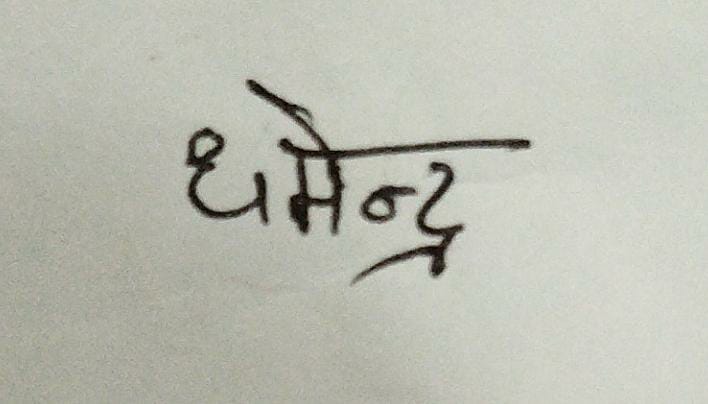 धर्मेन्द्र